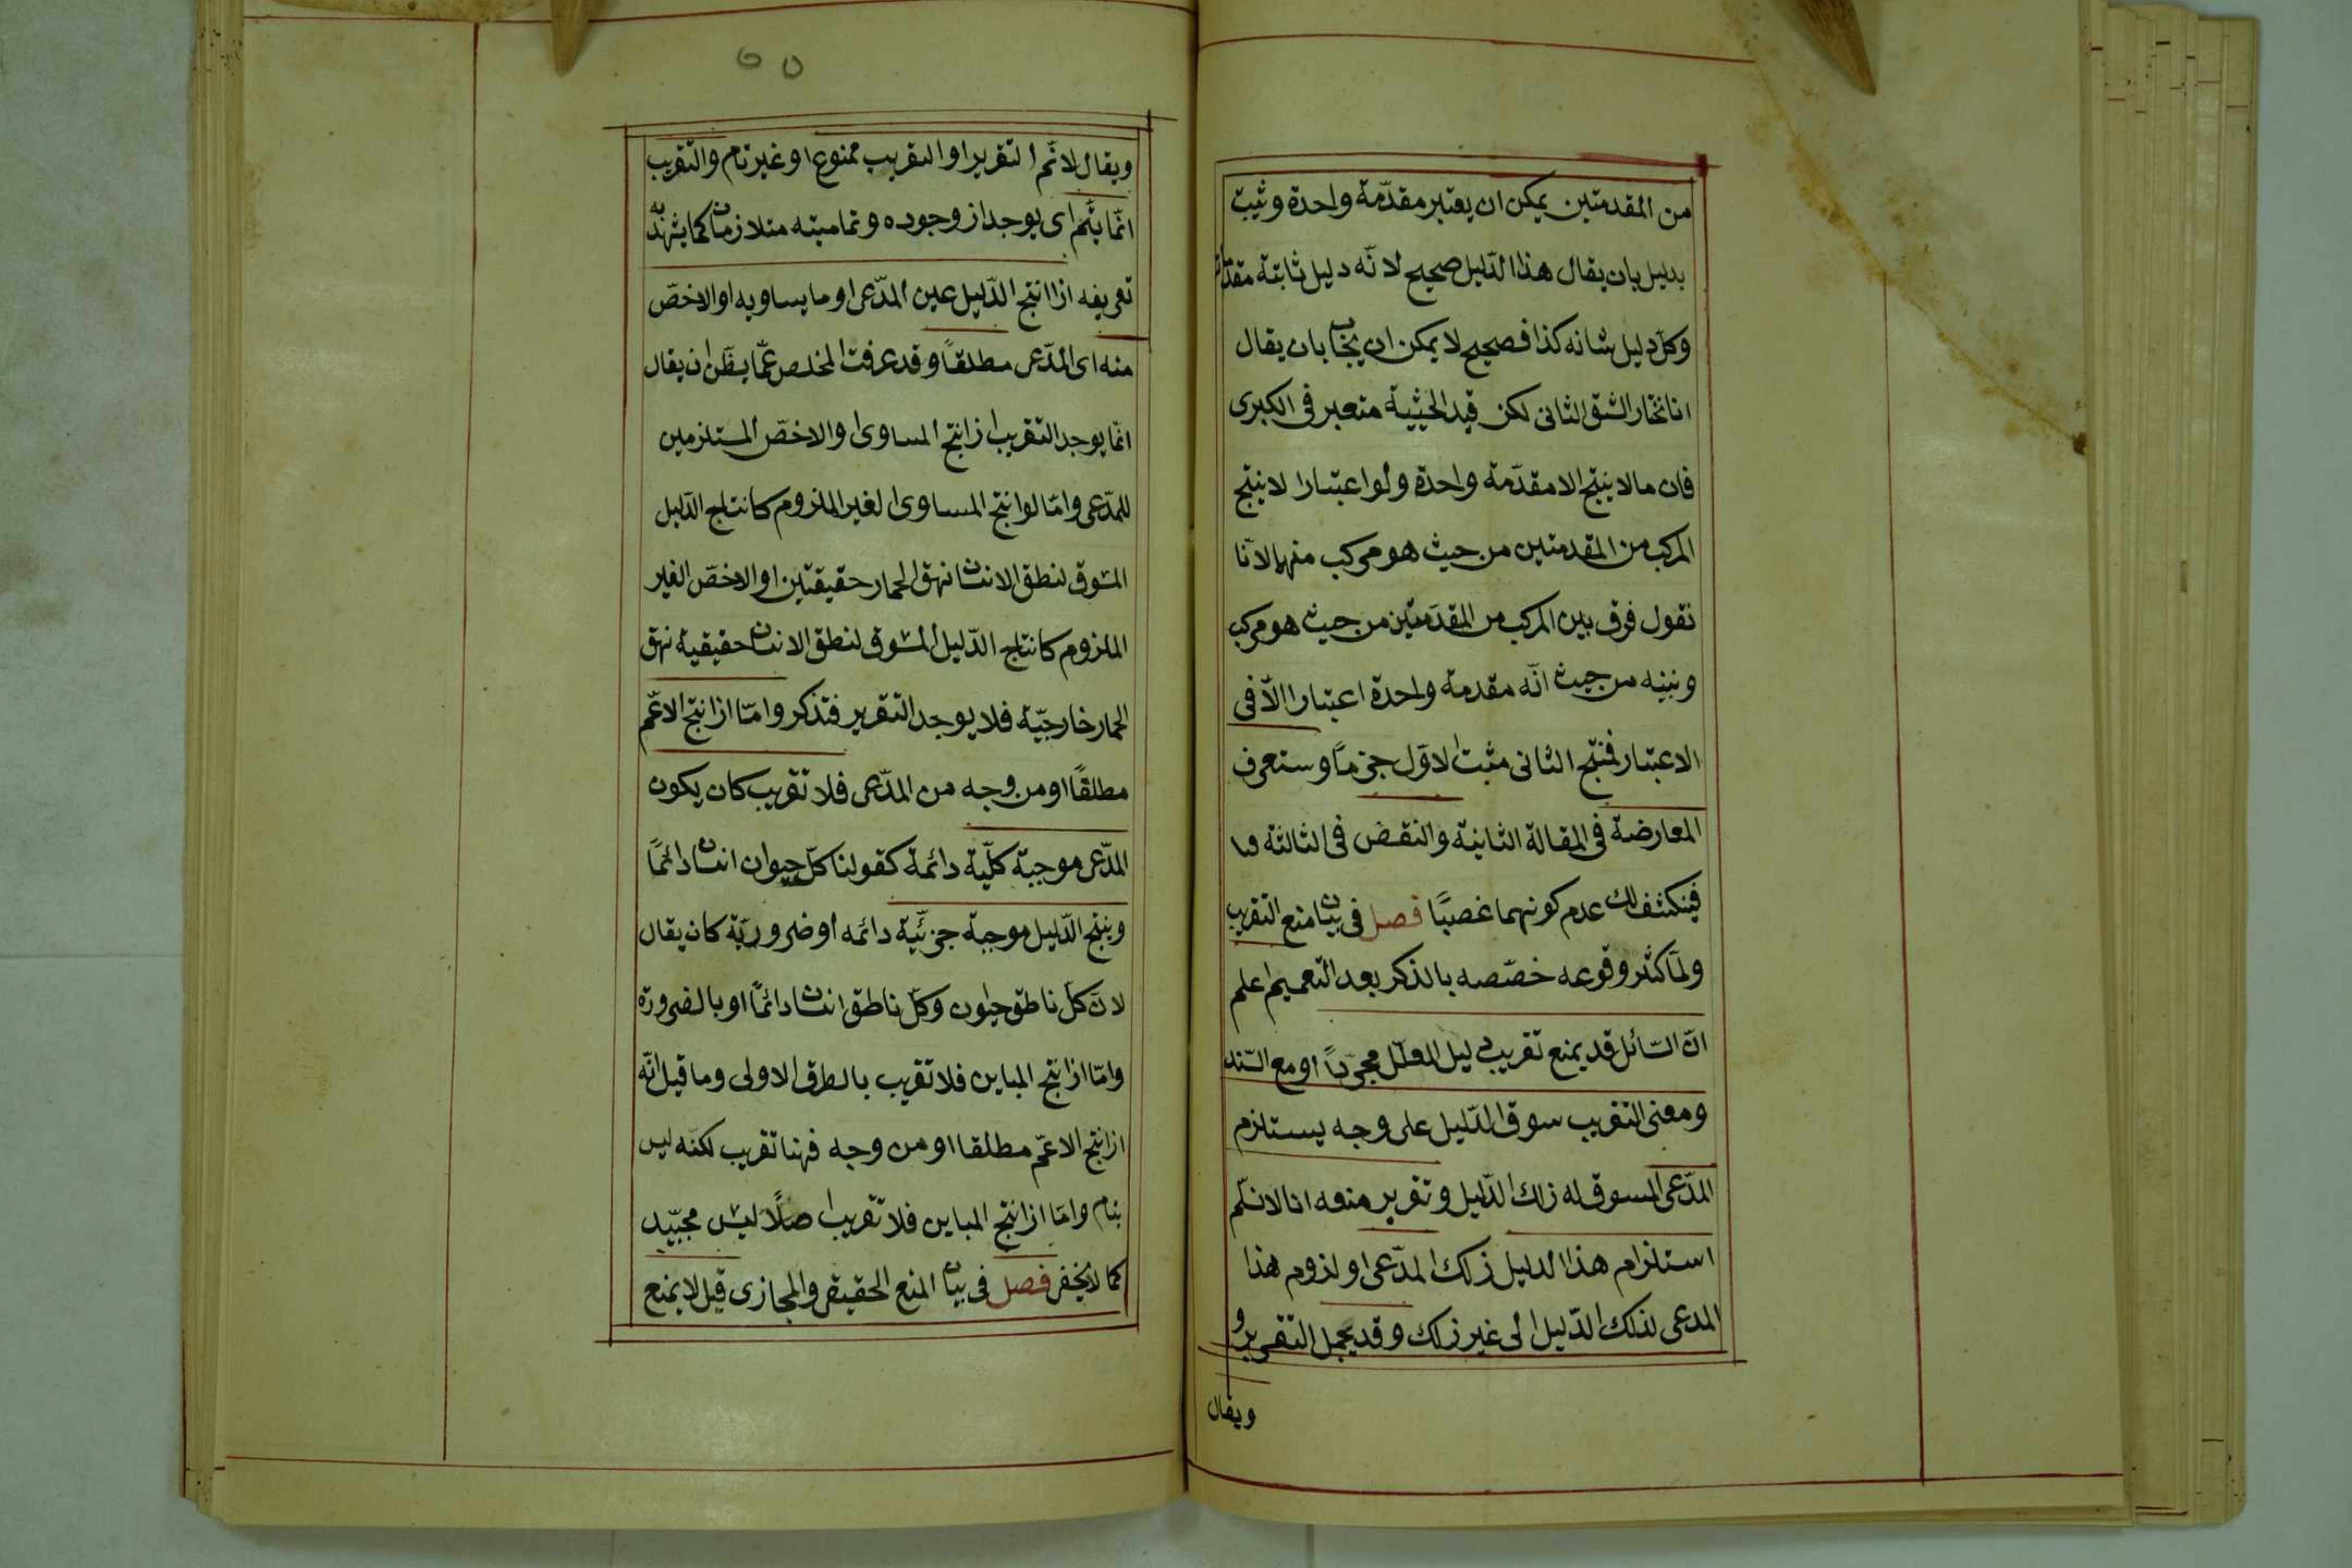 من المقدمتين يمكن ان يعتبر مقدّمة واحدة وثيبت
بدليل بان يقال هذا الدّليل صحيح لانّه دليل ثابتة مقدّماته
وكلّ دليل شانه كذا فصحيح لا يمكن ان يجاب بان يقال
انا نختار الشق الثانى لكن قيد الحيثية معتبر فى الكبرى
فان مالا ينتج الا مقدّمة واحدة ولو اعتبارا لا ينتج
المركب من المقدمتين من حيث هو مركب منهما لانّا
نقول فرق بين المركب من المقدّمتين من حيث هو مركب
وبينه من حيث انّه مقدمة واحدة اعتبارا الّا فى
الاعتبار فمنتج الثانى مثبت الاوّل جزمًا وستعرف
المعارضة فى المقالة الثانية والنقض فى الثالثة
فينكشف لك عدم كونهما غصبًا فصل فى بيان منع التقريب
ولمّا كثر وقوعه خصّصه بالذكر بعد التعميم اعلم
انّ السّائل قد يمنع تقريب دليل المعلّل مجرّدًا او مع السّند
ومعنى التقريب سوق الدّليل على وجه يستلزم
المدّعى المسوق له ذلك الدّليل وتقرير منعه انا لا نسلّم
استلزام هذا الدليل ذلك المدّعى او لزوم هذا
المدعى لذلك الدّليل الى غير ذلك وقد يجمل التقرير و
ويقال
٥٥
ويقال لا نّم التقرير او التقريب ممنوع او غير تام والتقريب
انّما يتّم اى يوجد اذ وجوده وتماميته متلازمان كما يشهد به
تعريفه اذا انتج الدّليل عين المدّعى او ما يساويه او الاخصّ
منه اى المدّعى مطلقًا وقد عرفت المخلص عمّا يظّن ان يقال
انّما يوجد التقريب اذ انتج المساوى او الاخصّ المستلزمين
للمدّعى وامّا لو انتج المساوى الغير الملزوم كانتاج الدّليل
المسوق لنطق الانسان نهق الحمار حقيقتين او الاخصّ الغير
الملزوم كانتاج الدّليل المسوق لنطق الانسان حقيقية نهق
الحمار خارجيّة فلا يوجد التقرير فتذكر وامّا اذا نتج الاعّم
مطلقًا او من وجه من المدّعى فلا تقريب كان يكون
المدّعى موجبة كلّية دائمة كقولنا كلّ حيوان انسان دائمًا
وينتج الدّليل موجبة جزئيّة دائمه او ضروريّة كان يقال
لانّ كلّ ناطق حيوان وكلّ ناطق انسان دائمًا او بالضرورة
وامّا اذا نتج المباين فلا تقريب بالطرق الاولى وما قيل انّه
اذا نتج الاعّم مطلقا او من وجه فهنا تقريب لكنّه ليس
بتام وامّا اذا نتج المباين فلا تقريب اصلًا ليس بجيّد
كما لا يخفى فصل فى بيان المنع الحقيقى والمجازى قيل لا يمنع